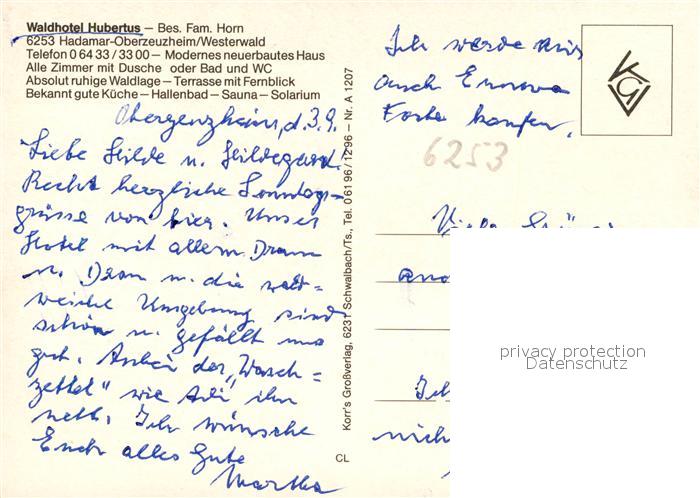 Waldhotel Hubertus – Bes. Fam. Horn
6253 Hadamar-Oberzeuzheim/Westerwald
Telefon 0 64 33 / 33 00 – Modernes neuerbautes Haus
Alle Zimmer mit Dusche oder Bad und WC
Absolut ruhige Waldlage – Terrasse mit Fernblick
Bekannt gute Küche – Hallenbad – Sauna – Solarium
d. 3.9.
Liebe Hilde u. Hildegard.
Recht herzliche Sonntags-
grüsse von hier. Unser
Hotel mit allem Dran
u. Dran u. die wald=
reiche Umgebung sind
schön u. gefällt uns
gut. Anbei der „Wasch=
zettel" wie Adi ihn
nett. Ich wünsche
Euch alles Gute
Martha
Korr's Großverlag, 6231 Schwalbach/Ts., Tel. 0 61 96 / 12 96 – Nr. A 1207
CL
Ich werde mir
auch
kaufen.
KGV
6253
Viele
Ich
nich
privacy protection
Datenschutz